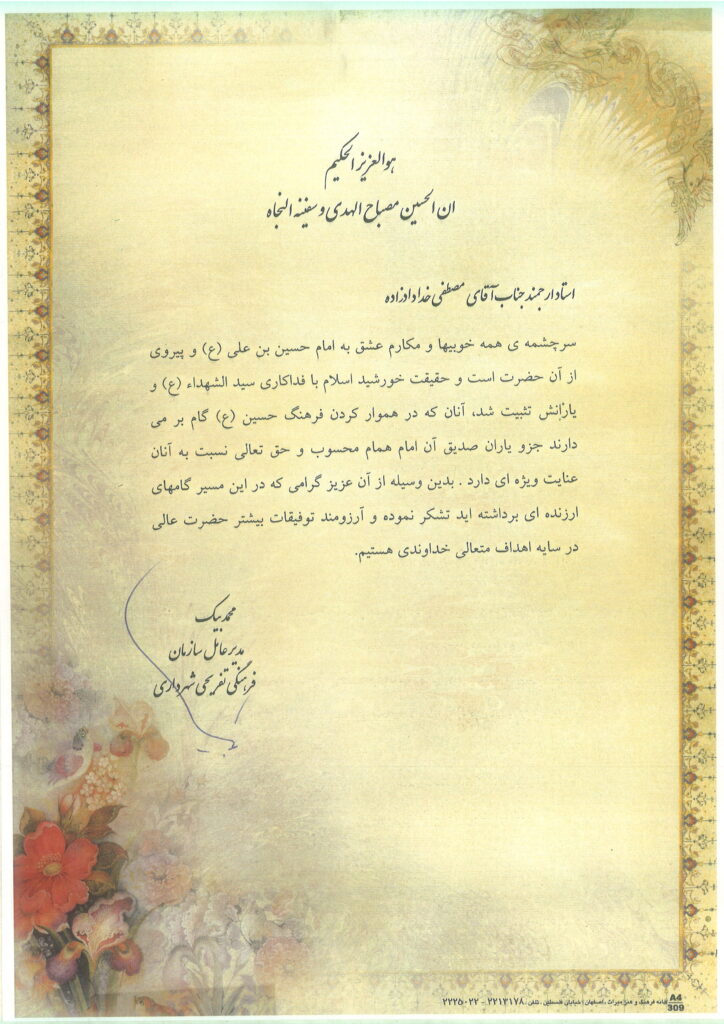 هوالعزیز الحکیم
ان الحسین مصباح الهدی و سفینه النجاه
استاد ارجمند جناب آقای مصطفی خدادادزاده
سرچشمه ی همه خوبیها و مکارم عشق به امام حسین بن علی (ع) و پیروی
از آن حضرت است و حقیقت خورشید اسلام با فداکاری سید الشهداء (ع) و
یارانش تثبیت شد، آنان که در هموار کردن فرهنگ حسین (ع) گام بر می
دارند جزو یاران صدیق آن امام همام محسوب و حق تعالی نسبت به آنان
عنایت ویژه ای دارد . بدین وسیله از آن عزیز گرامی که در این مسیر گامهای
ارزنده ای برداشته اید تشکر نموده و آرزومند توفیقات بیشتر حضرت عالی
در سایه اهداف متعالی خداوندی هستیم.
محمد بیک
مدیر عامل سازمان
فرهنگی تفریحی شهرداری
خانه فرهنگ و هنر میراث ، اصفهان ؛ خیابان فلسطین ، تلفن ۲۲۱۲۱۷۸ - ۲۲۲۵۰۲۲
A4
309